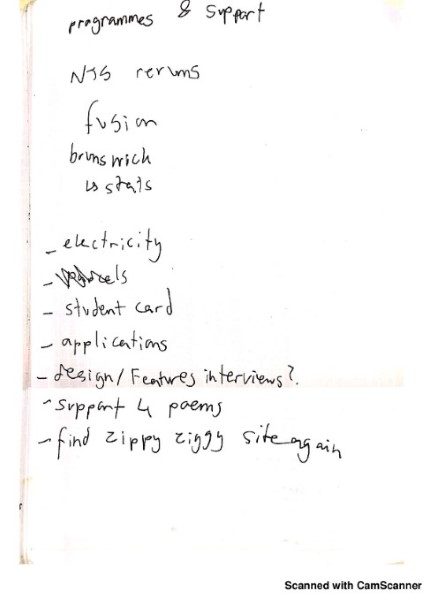 programmes & support
NJS reruns
fusion
brunswich
↳ stats
- electricity
-
- student card
- applications
- design/Features interviews?.
- support 4 poems
- find zippy ziggy site again
Scanned with CamScanner